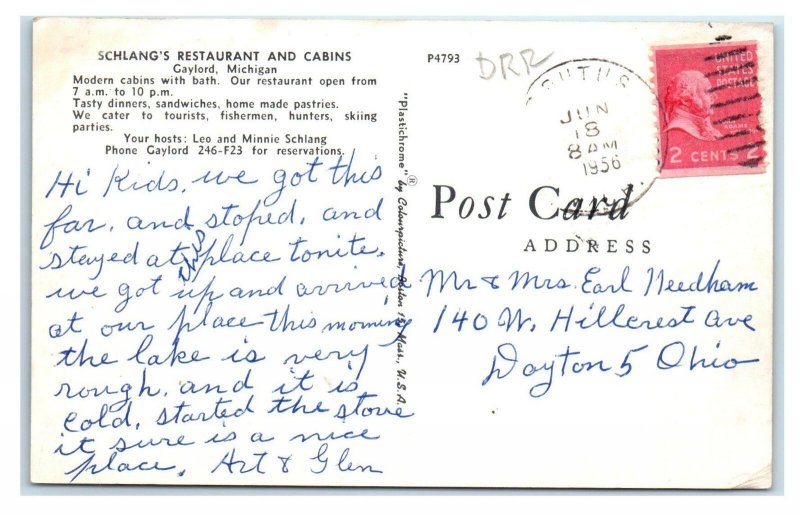 SCHLANG'S RESTAURANT AND CABINS
Gaylord, Michigan
Modern cabins with bath. Our restaurant open from
7 a.m. to 10 p.m.
Tasty dinners, sandwiches, home made pastries.
We cater to tourists, fishermen, hunters, skiing
parties.
Your hosts: Leo and Minnie Schlang
Phone Gaylord 246-F23 for reservations.
Hi Kids, we got this
far, and stoped, and
stayed at this place tonite.
we got up and arrived
at our place this morning
the lake is very
rough, and it is
cold, started the stove
it sure is a nice
place. Art & Glen
P4793
DRR
"Plastichrome" ® by Colourpicture, Boston 15, Mass., U.S.A.
JUN
18
8 AM
1956
UNITED
STATES
POSTAGE
2 CENTS 2
Post Card
ADDRESS
Mr & Mrs. Earl Needham
140 W. Hillcrest Ave
Dayton 5 Ohio